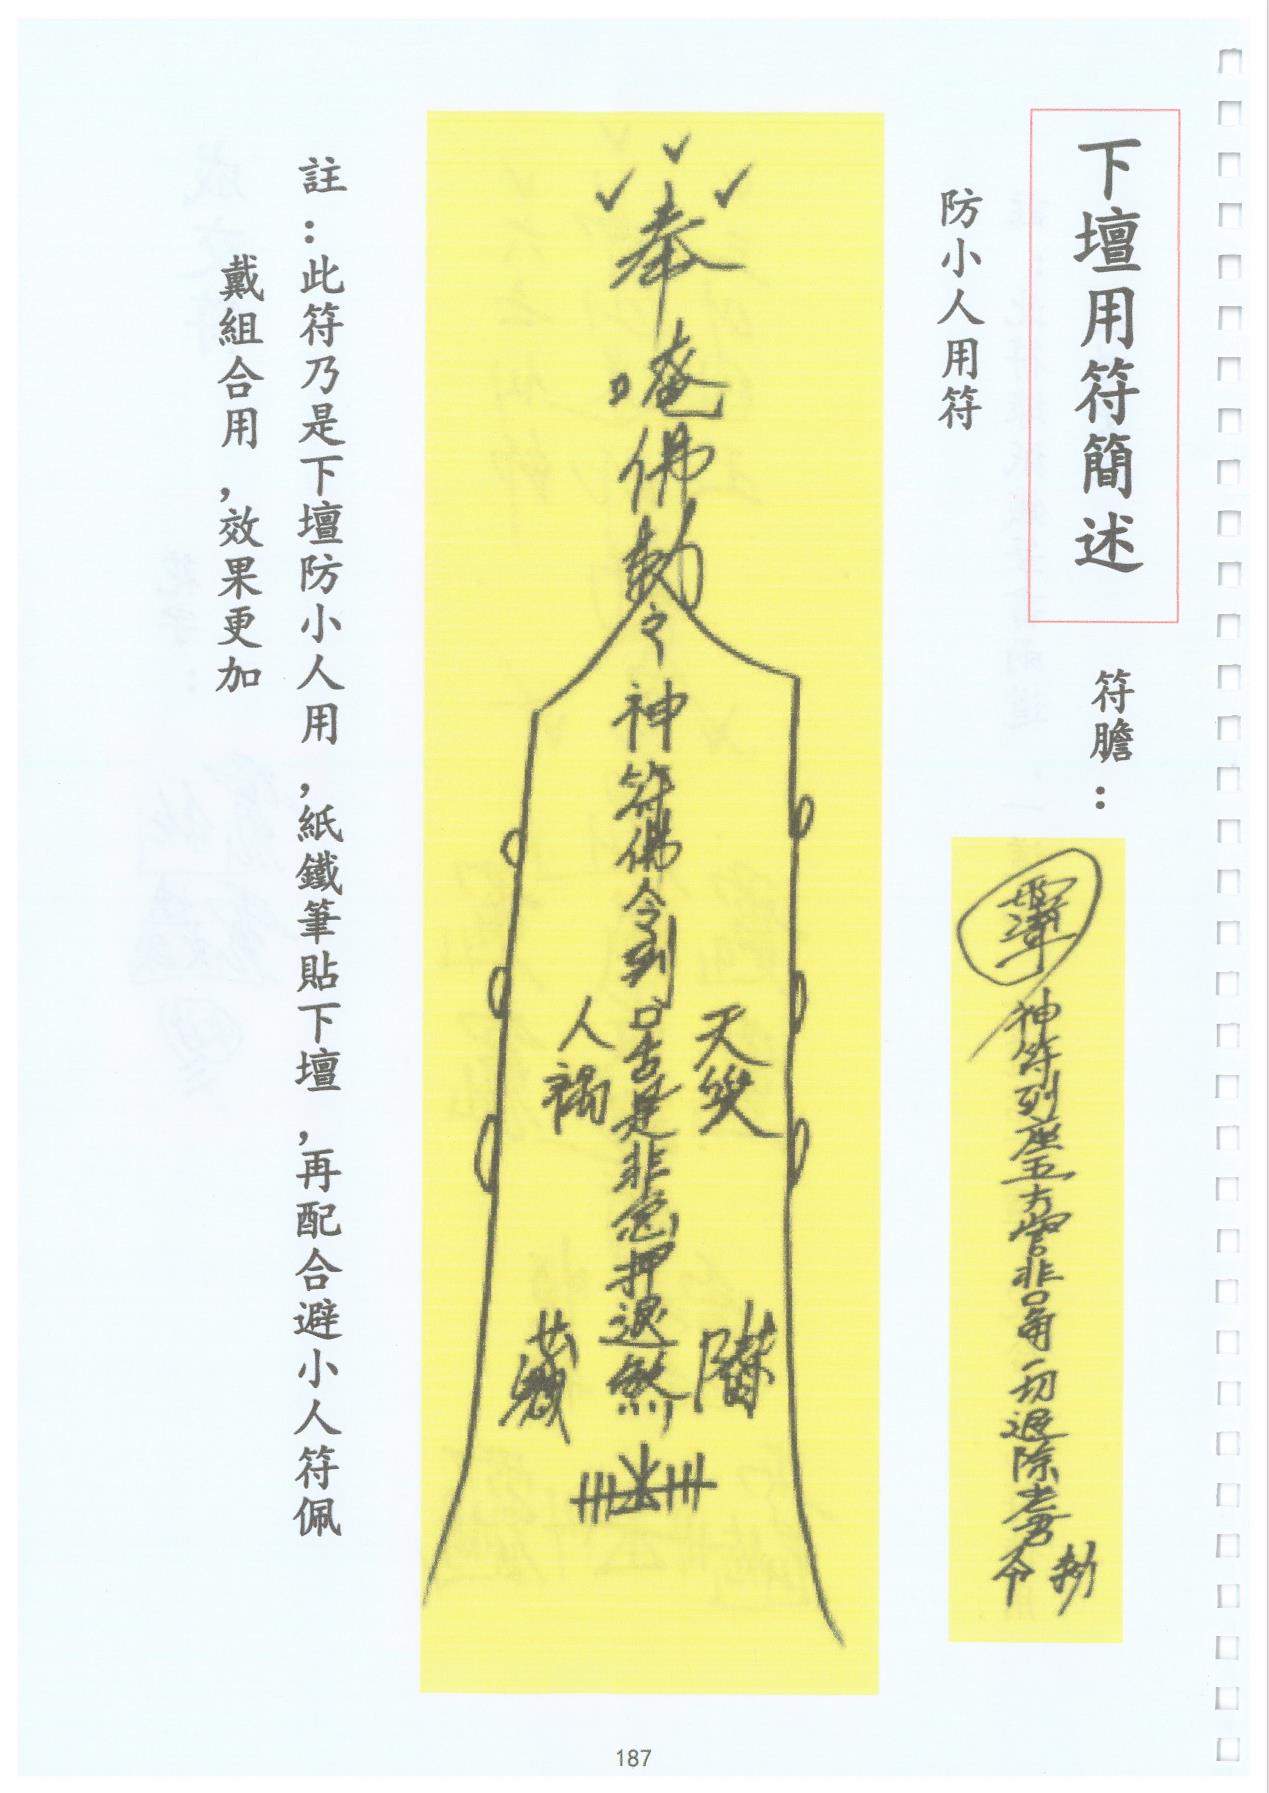 下壇用符簡述
符膽:
神符列座五方營非口角一切退除老君
敕
令
防小人用符
奉唵佛勅令神符佛令列口舌是非急押退煞
天災
人禍
註:此符乃是下壇防小人用,紙鐵筆貼下壇,再配合避小人符佩
戴組合用,效果更加
187